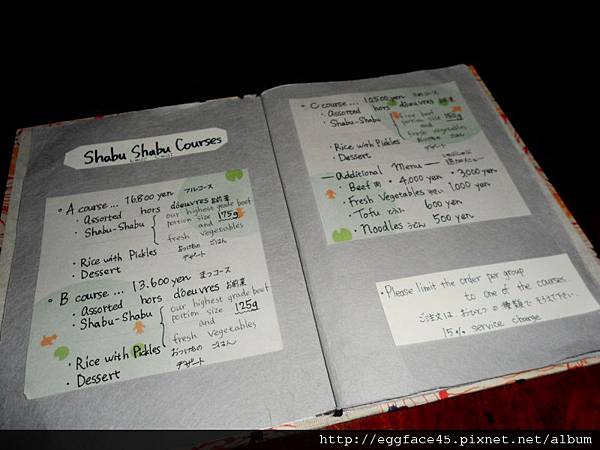 Shabu Shabu Courses
• A course ... 16.800 yen フルコース
• Assorted hors d'oeuvres お前菜
• Shabu-Shabu { our highest grade beef
portion size 175g
and
fresh vegetables
• Rice with Pickles おつけもの ごはん
• Dessert デザート
• B course ... 13.600 yen まつコース
• Assorted hors d'oeuvres お前菜
• Shabu-Shabu { our highest grade beef
portion size 125g
and
fresh vegetables
• Rice with Pickles おつけもの ごはん
• Dessert デザート
• C course ... 10.500 yen
• Assorted hors d'oeuvres お前菜
• Shabu-Shabu { beef
portion size 150g
and
fresh vegetables
• Rice with Pickles
• Dessert デザート
Additional Menu
• Beef 肉 • 4,000 yen • 3,000 yen
• Fresh Vegetables 野さい 1,000 yen
• Tofu とふ 600 yen
• Noodles うどん 500 yen
• Please limit the order per group
to one of the courses.
ご注文は、おひとつの種類で
15% service charge
http://eggface45.pixnet.net/album